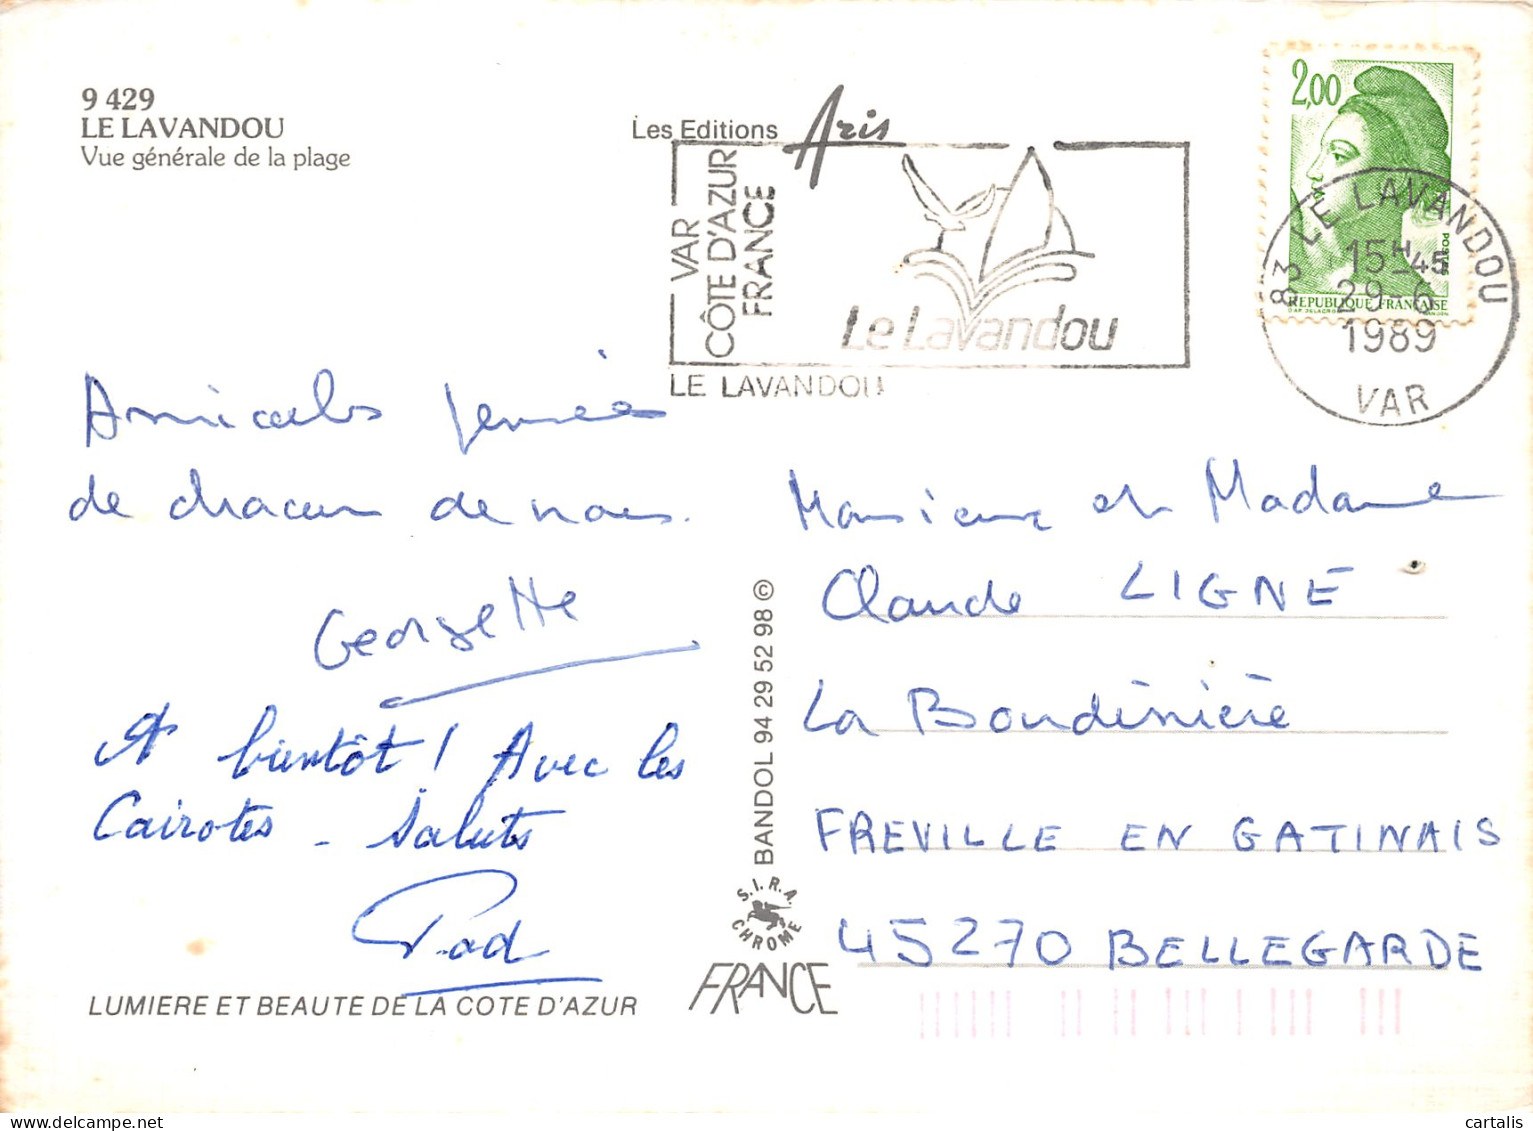 9 429
LE LAVANDOU
Vue générale de la plage
Les Editions Aris
VAR
CÔTE D'AZUR
FRANCE
Le Lavandou
LE LAVANDOU
2,00
POSTES
REPUBLIQUE FRANÇAISE
83 LE LAVANDOU
15H-45
29-6
1989
VAR
Amicales pensées
de chacun de nous.
Georgette
A bientôt! Avec les
Cairotes - Saluts
Monsieur et Madame
Claude LIGNE
La Boudinière
FREVILLE EN GATINAIS
45270 BELLEGARDE
BANDOL 94 29 52 98 ©
S.I.R.A.
CHROME
FRANCE
LUMIERE ET BEAUTE DE LA COTE D'AZUR
cartalis